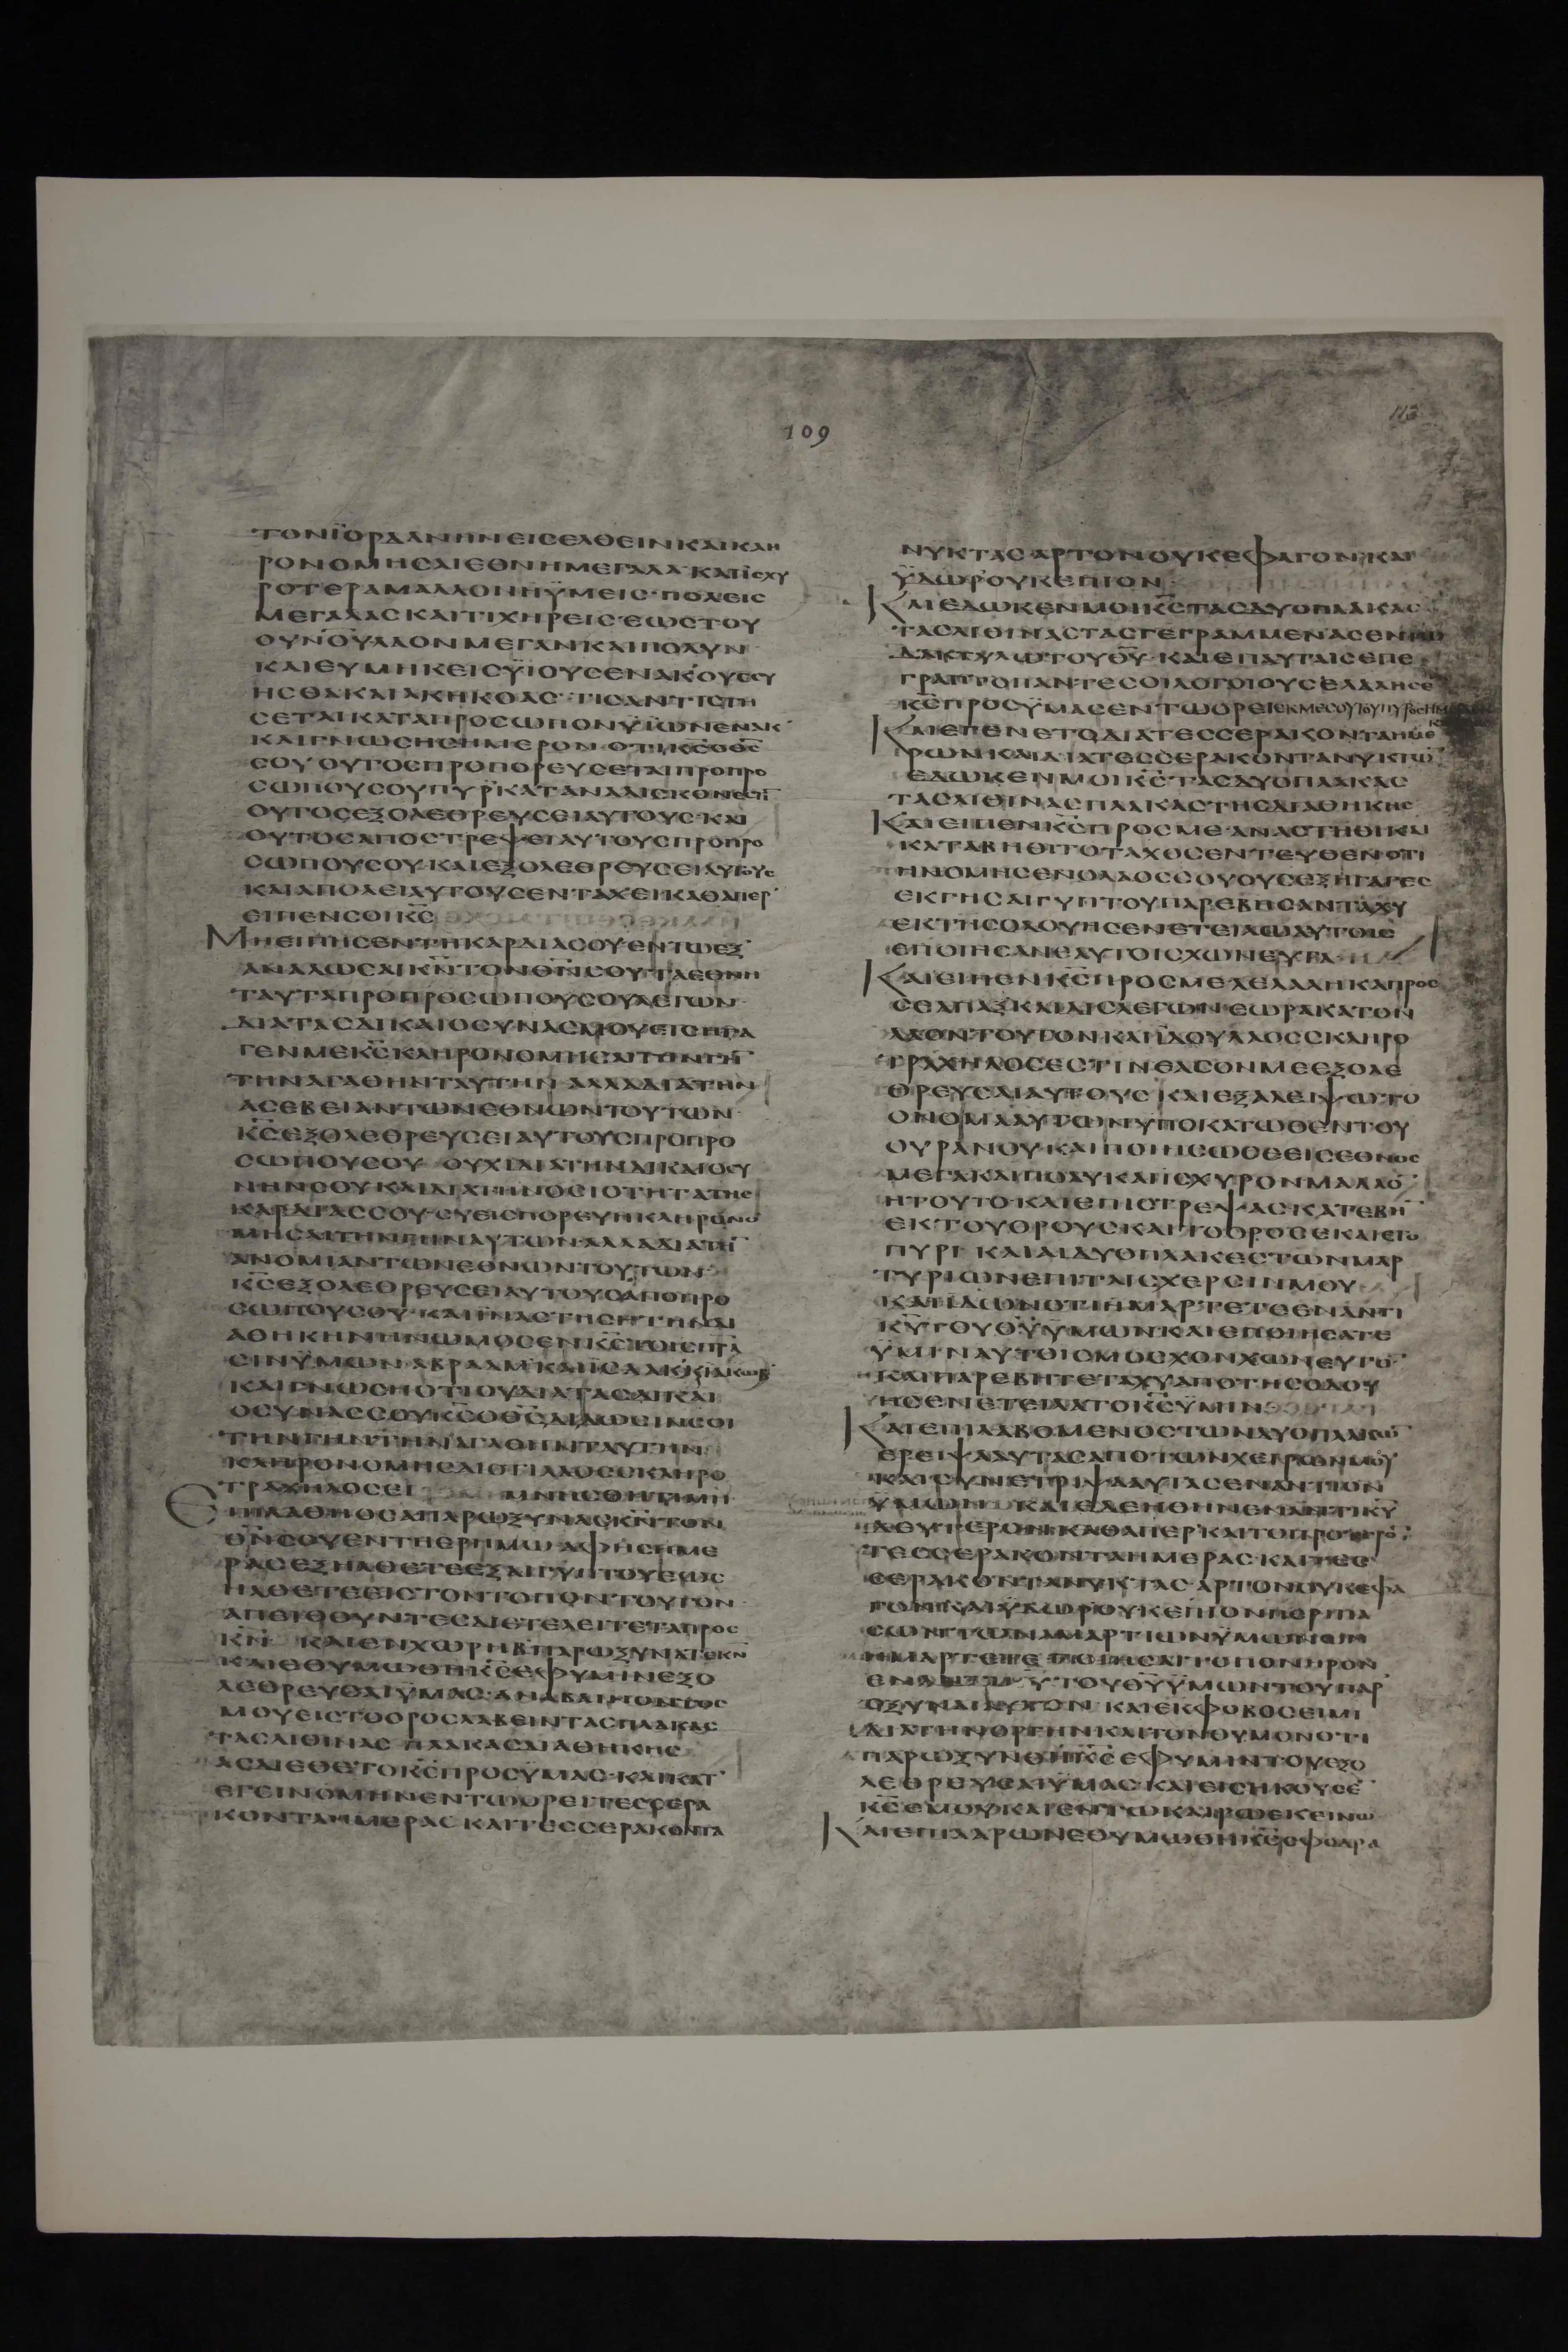 109
113
ΤΟΝΪΟΡΔΑΝΗΝΕΙΣΕΛΘΕΙΝΚΑΙΚΛΗ
ΡΟΝΟΜΗΣΑΙΕΘΝΗΜΕΓΑΛΑ ΚΑΤΙΣΧΥ
ΡΟΤΕΡΑΜΑΛΛΟΝΗΫΜΕΙΣ·ΠΟΛΕΙΣ
ΜΕΓΑΛΑΣΚΑΙΤΙΧΗΡΕΙΣΕΩΣΤΟΥ
ΟΥΝΟΥΛΑΟΝΜΕΓΑΝΚΑΙΠΟΛΥΝ
ΚΑΙΕΥΜΗΚΕΙΣΫΙΟΥΣΕΝΑΚΟΥΣΣΥ
ΗΣΘΑΚΑΙΑΚΗΚΟΑΣ·ΤΙΣΑΝΤΙΣΤΗ
ΣΕΤΑΙΚΑΤΑΠΡΟΣΩΠΟΝΫΪΩΝΕΝΑΚ
ΚΑΙΓΝΩΣΗΣΗΜΕΡΟΝ·ΟΤΙΚΣΟΘΣ
ΣΟΥ ΟΥΤΟΣΠΡΟΠΟΡΕΥΣΕΤΑΙΠΡΟΠΡΟ
ΣΩΠΟΥΣΟΥΠΥΡΚΑΤΑΝΑΛΙΣΚΟΝΕΣΤΙ
ΟΥΤΟΣΕΞΟΛΕΘΡΕΥΣΕΙΑΥΤΟΥΣ·ΚΑΙ
ΟΥΤΟΣΑΠΟΣΤΡΕΨΕΙΑΥΤΟΥΣΠΡΟΠΡΟ
ΣΩΠΟΥΣΟΥ·ΚΑΙΕΞΟΛΕΘΡΕΥΣΕΙΑΥΤΟΥΣ
ΚΑΙΑΠΟΛΕΙΑΥΤΟΥΣΕΝΤΑΧΕΙΚΑΘΑΠΕΡ
ΕΙΠΕΝΣΟΙΚΣ
ΜΗΕΙΠΗΣΕΝΤΗΚΑΡΔΙΑΣΟΥ·ΕΝΤΩΕΞ
ΑΝΑΛΩΣΑΙΚΝΤΟΝΘΝΣΟΥ·ΤΑΕΘΝΗ
ΤΑΥΤΑΠΡΟΠΡΟΣΩΠΟΥΣΟΥΛΕΓΩΝ
ΔΙΑΤΑΣΔΙΚΑΙΟΣΥΝΑΣΜΟΥΕΙΣΗΓΑ
ΓΕΝΜΕΚΣΚΛΗΡΟΝΟΜΗΣΑΙΤΗΝΓΗ
ΤΗΝΑΓΑΘΗΝΤΑΥΤΗΝ ΑΛΛΑΔΙΑΤΗΝ
ΑΣΕΒΕΙΑΝΤΩΝΕΘΝΩΝΤΟΥΤΩΝ
ΚΣΕΞΟΛΕΘΡΕΥΣΕΙΑΥΤΟΥΣΠΡΟΠΡΟ
ΣΩΠΟΥΣΟΥ ΟΥΧΙΔΙΑΤΗΝΔΙΚΑΙΟΣΥ
ΝΗΝΣΟΥ·ΚΑΙΔΙΑΤΗΝΟΣΙΟΤΗΤΑΤΗΣ
ΚΑΡΔΙΑΣΣΟΥ·ΣΥΕΙΣΠΟΡΕΥΗΚΛΗΡΟΝΟ
ΜΗΣΑΙΤΗΝΓΗΝΑΥΤΩΝ·ΑΛΛΑΔΙΑΤΗ
ΑΝΟΜΙΑΝΤΩΝΕΘΝΩΝΤΟΥΤΩΝ
ΚΣΕΞΟΛΕΘΡΕΥΣΕΙΑΥΤΟΥΣΑΠΟΠΡΟ
ΣΩΠΟΥΣΟΥ·ΚΑΙΪΝΑΣΤΗΣΗΤΗΝΔΙ
ΑΘΗΚΗΝΗΝΩΜΟΣΕΝΚΣΤΟΙΣΠΑΤΡΑ
ΣΙΝΫΜΩΝ·ΑΒΡΑΑΜ·ΚΑΙΪΣΑΑΚ·ΚΑΙΙΑΚΩΒ
ΚΑΙΓΝΩΣΗΟΤΙΟΥΔΙΑΤΑΣΔΙΚΑΙ
ΟΣΥΝΑΣΣΟΥΚΣΟΘΣΔΙΔΩΣΙΝΣΟΙ
ΤΗΝΓΗΝΤΗΝΑΓΑΘΗΝΤΑΥΤΗΝ
ΚΛΗΡΟΝΟΜΗΣΑΙΟΤΙΛΑΟΣΣΚΛΗΡΟ
ΤΡΑΧΗΛΟΣΕΙ ΜΝΗΣΘΗΤΙΜΗ
ΕΠΙΛΑΘΗΟΣΑΠΑΡΩΞΥΝΑΣΚΝΤΟΝ
ΘΝΣΟΥΕΝΤΗΕΡΗΜΩ ΑΦΗΣΗΜΕ
ΡΑΣΕΞΗΛΘΕΤΕΕΞΑΙΓΥΠΤΟΥΕΩΣ
ΗΛΘΕΤΕΕΙΣΤΟΝΤΟΠΟΝΤΟΥΤΟΝ
ΑΠΕΙΘΟΥΝΤΕΣΔΙΕΤΕΛΕΙΤΕΤΑΠΡΟΣ
ΚΝ ΚΑΙΕΝΧΩΡΗΒΠΑΡΩΞΥΝΑΤΕΚΝ
ΚΑΙΕΘΥΜΩΘΗΚΣΕΦΥΜΙΝΕΞΟ
ΛΕΘΡΕΥΣΑΙΫΜΑΣ·ΑΝΑΒΑΙΝΟΝΤΟΣ
ΜΟΥΕΙΣΤΟΟΡΟΣΛΑΒΕΙΝΤΑΣΠΛΑΚΑΣ
ΤΑΣΛΙΘΙΝΑΣ ΠΛΑΚΑΣΔΙΑΘΗΚΗΣ
ΑΣΔΙΕΘΕΤΟΚΣΠΡΟΣΫΜΑΣ·ΚΑΙΚΑΤ
ΕΓΕΙΝΟΜΗΝΕΝΤΩΟΡΕΙΤΕΣΣΕΡΑ
ΚΟΝΤΑΗΜΕΡΑΣΚΑΙΤΕΣΣΕΡΑΚΟΝΤΑ
ΝΥΚΤΑΣ ΑΡΤΟΝΟΥΚΕΦΑΓΟΝ·ΚΑΙ
ΫΔΩΡΟΥΚΕΠΙΟΝ
ΚΑΙΕΔΩΚΕΝΜΟΙΚΣΤΑΣΔΥΟΠΛΑΚΑΣ
ΤΑΣΛΙΘΙΝΑΣΤΑΣΓΕΓΡΑΜΜΕΝΑΣΕΝΤΩ
ΔΑΚΤΥΛΩΤΟΥΘΥ·ΚΑΙΕΠΑΥΤΑΙΣΕΠΕ
ΓΡΑΠΤΟΠΑΝΤΕΣΟΙΛΟΓΟΙΟΥΣΕΛΑΛΗΣΕ
ΚΣΠΡΟΣΫΜΑΣΕΝΤΩΟΡΕΙΕΚΜΕΣΟΥΤΟΥΠΥΡΟΣΗΜ
ΚΑΙΕΓΕΝΕΤΟΔΙΑΤΕΣΣΕΡΑΚΟΝΤΑΗΜΕ
ΡΩΝΚΑΙΔΙΑΤΕΣΣΕΡΑΚΟΝΤΑΝΥΚΤΩ
ΕΔΩΚΕΝΜΟΙΚΣΤΑΣΔΥΟΠΛΑΚΑΣ
ΤΑΣΛΙΘΙΝΑΣΠΛΑΚΑΣΤΗΣΔΙΑΘΗΚΗΣ
ΚΑΙΕΙΠΕΝΚΣΠΡΟΣΜΕ·ΑΝΑΣΤΗΘΙΚΑΙ
ΚΑΤΑΒΗΘΙΤΟΤΑΧΟΣΕΝΤΕΥΘΕΝ·ΟΤΙ
ΗΝΟΜΗΣΕΝΟΛΑΟΣΣΟΥΟΥΣΕΞΗΓΑΓΕΣ
ΕΚΓΗΣΑΙΓΥΠΤΟΥΠΑΡΕΒΗΣΑΝΤΑΧΥ
ΕΚΤΗΣΟΔΟΥΗΣΕΝΕΤΕΙΛΩΑΥΤΟΙΣ
ΕΠΟΙΗΣΑΝΕΑΥΤΟΙΣΧΩΝΕΥΜΑ
ΚΑΙΕΙΠΕΝΚΣΠΡΟΣΜΕΛΕΛΑΛΗΚΑΠΡΟΣ
ΣΕΑΠΑΞΚΑΙΔΙΣΛΕΓΩΝΕΩΡΑΚΑΤΟΝ
ΛΑΟΝΤΟΥΤΟΝΚΑΙΪΔΟΥΛΑΟΣΣΚΛΗΡΟ
ΤΡΑΧΗΛΟΣΕΣΤΙΝΘΑΣΟΝΜΕΕΞΟΛΕ
ΘΡΕΥΣΑΙΑΥΤΟΥΣ ΚΑΙΕΞΑΛΕΙΨΩΤΟ
ΟΝΟΜΑΑΥΤΩΝΥΠΟΚΑΤΩΘΕΝΤΟΥ
ΟΥΡΑΝΟΥ·ΚΑΙΠΟΙΗΣΩΣΕΕΙΣΕΘΝΟΣ
ΜΕΓΑΚΑΙΠΟΛΥΚΑΙΙΣΧΥΡΟΝΜΑΛΛΟ
ΗΤΟΥΤΟ·ΚΑΙΕΠΙΣΤΡΕΨΑΣΚΑΤΕΒΗ
ΕΚΤΟΥΟΡΟΥΣΚΑΙΤΟΟΡΟΣΕΚΑΙΕΤΟ
ΠΥΡΙ ΚΑΙΑΙΔΥΟΠΛΑΚΕΣΤΩΝΜΑΡ
ΤΥΡΙΩΝΕΠΙΤΑΙΣΧΕΡΣΙΝΜΟΥ
ΚΑΙΪΔΩΝΟΤΙΗΜΑΡΤΕΤΕΕΝΑΝΤΙ
ΚΥΤΟΥΘΥΫΜΩΝ·ΚΑΙΕΠΟΙΗΣΑΤΕ
ΫΜΙΝΑΥΤΟΙΣΜΟΣΧΟΝΧΩΝΕΥΤΟ
ΚΑΙΠΑΡΕΒΗΤΕΤΑΧΥΑΠΟΤΗΣΟΔΟΥ
ΗΣΕΝΕΤΕΙΛΑΤΟΚΣΫΜΙΝ
ΚΑΙΕΠΙΛΑΒΟΜΕΝΟΣΤΩΝΔΥΟΠΛΑΚΩ
ΕΡΕΙΨΑΑΥΤΑΣΑΠΟΤΩΝΧΕΙΡΩΝΜΟΥ
ΚΑΙΣΥΝΕΤΡΙΨΑΑΥΤΑΣΕΝΑΝΤΙΟΝ
ΫΜΩΝ ΚΑΙΕΔΕΗΘΗΝΕΝΑΝΤΙΚΥ
ΔΕΥΤΕΡΟΝ·ΚΑΘΑΠΕΡΚΑΙΤΟΠΡΟΤΕΡΟ
ΤΕΣΣΕΡΑΚΟΝΤΑΗΜΕΡΑΣ·ΚΑΙΤΕΣ
ΣΕΡΑΚΟΝΤΑΝΥΚΤΑΣ·ΑΡΤΟΝΟΥΚΕΦΑ
ΓΟΝΚΑΙΫΔΩΡΟΥΚΕΠΙΟΝΠΕΡΙΠΑ
ΣΩΝΤΩΝΑΜΑΡΤΙΩΝΫΜΩΝΩΝ
ΗΜΑΡΤΕΤΕ ΠΟΙΗΣΑΙΤΟΠΟΝΗΡΟΝ
ΕΝΑΝΤΙΚΥΤΟΥΘΥΫΜΩΝΤΟΥΠΑΡ
ΟΞΥΝΑΙΑΥΤΟΝ ΚΑΙΕΚΦΟΒΟΣΕΙΜΙ
ΔΙΑΤΗΝΟΡΓΗΝΚΑΙΤΟΝΘΥΜΟΝΟΤΙ
ΠΑΡΩΞΥΝΘΗΚΣΕΦΥΜΙΝΤΟΥΕΞΟ
ΛΕΘΡΕΥΣΑΙΫΜΑΣ·ΚΑΙΕΙΣΗΚΟΥΣΕ
ΚΣΕΜΟΥΚΑΙΕΝΤΩΚΑΙΡΩΕΚΕΙΝΩ
ΚΑΙΕΠΙΑΑΡΩΝΕΘΥΜΩΘΗΚΣΣΦΟΔΡΑ